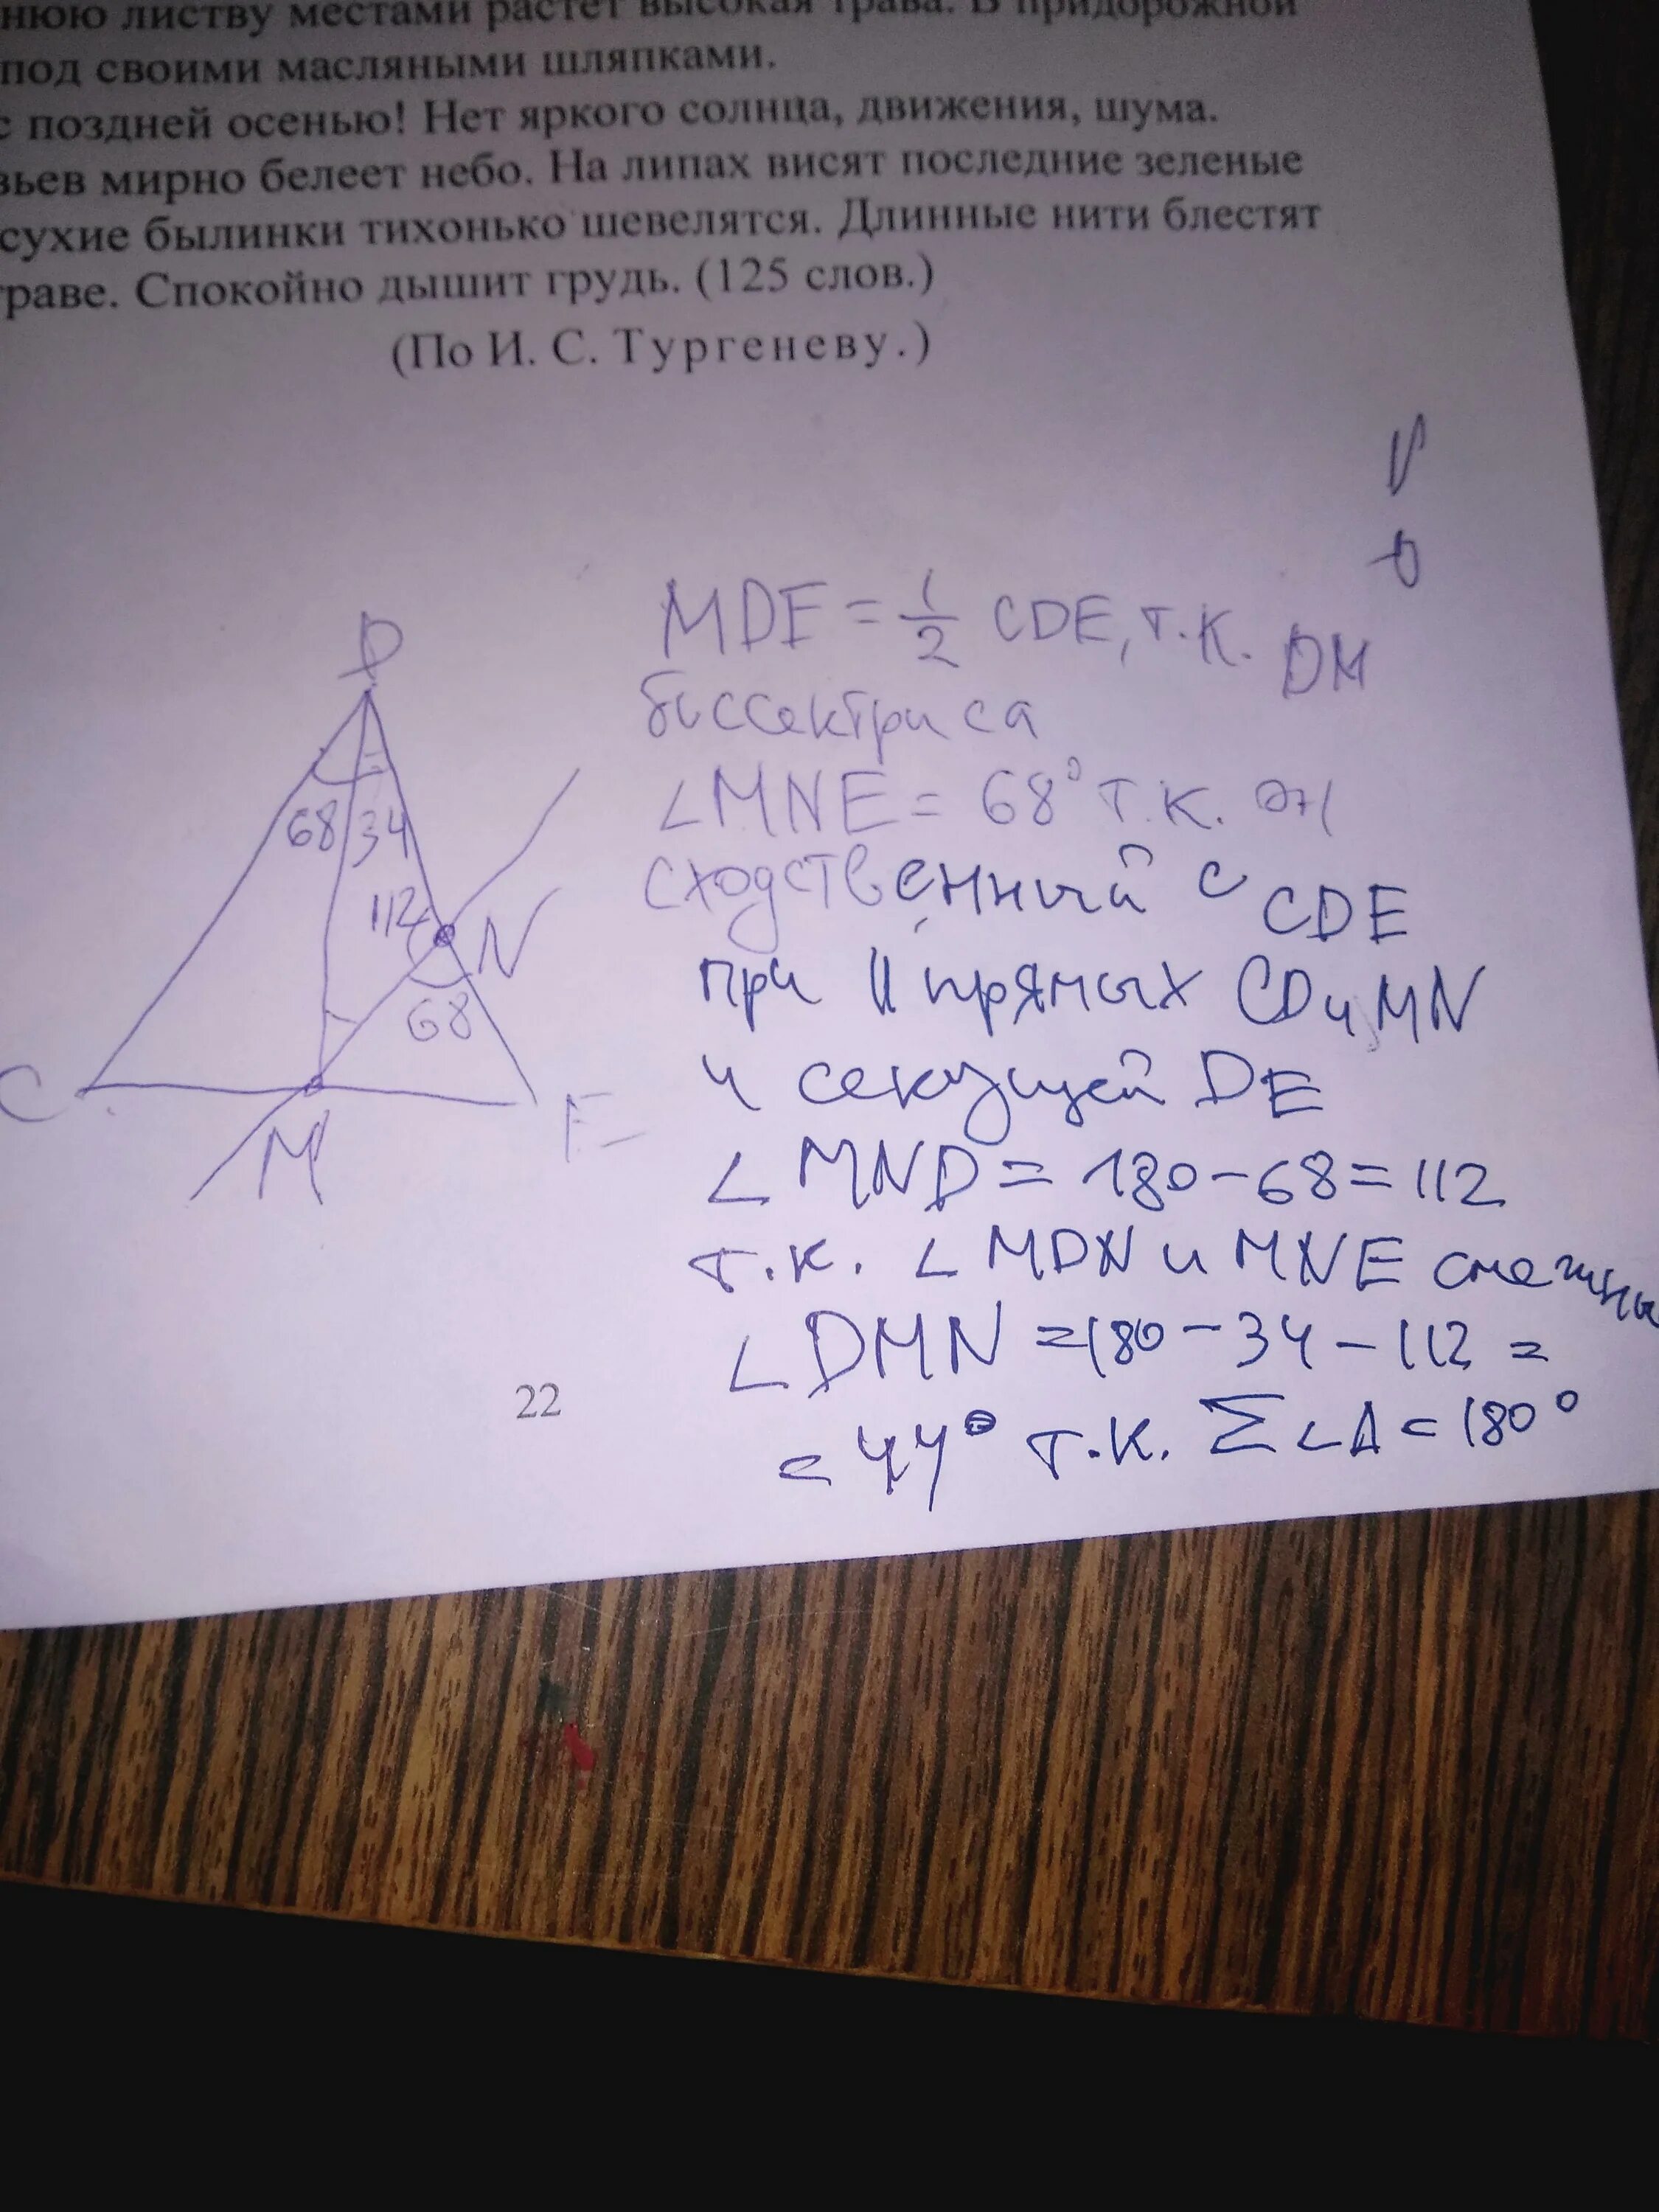 нюю листву местами растет высокая трава. В придорожной
под своими масляными шляпками.
с поздней осенью! Нет яркого солнца, движения, шума.
вьев мирно белеет небо. На липах висят последние зеленые
сухие былинки тихонько шевелятся. Длинные нити блестят
траве. Спокойно дышит грудь. (125 слов.)
(По И. С. Тургеневу.)
D
68 34
112
N
68
C
E
M
MDE = 1/2 CDE, т.к. DM
биссектриса
∠MNE = 68° т.к.
сходственный с CDE
при || прямых CD и MN
и секущей DE
∠MND = 180-68=112
т.к. ∠MDN и MNE смежны
∠DMN =180-34-112=
=44° т.к. Σ∠Δ=180°
22